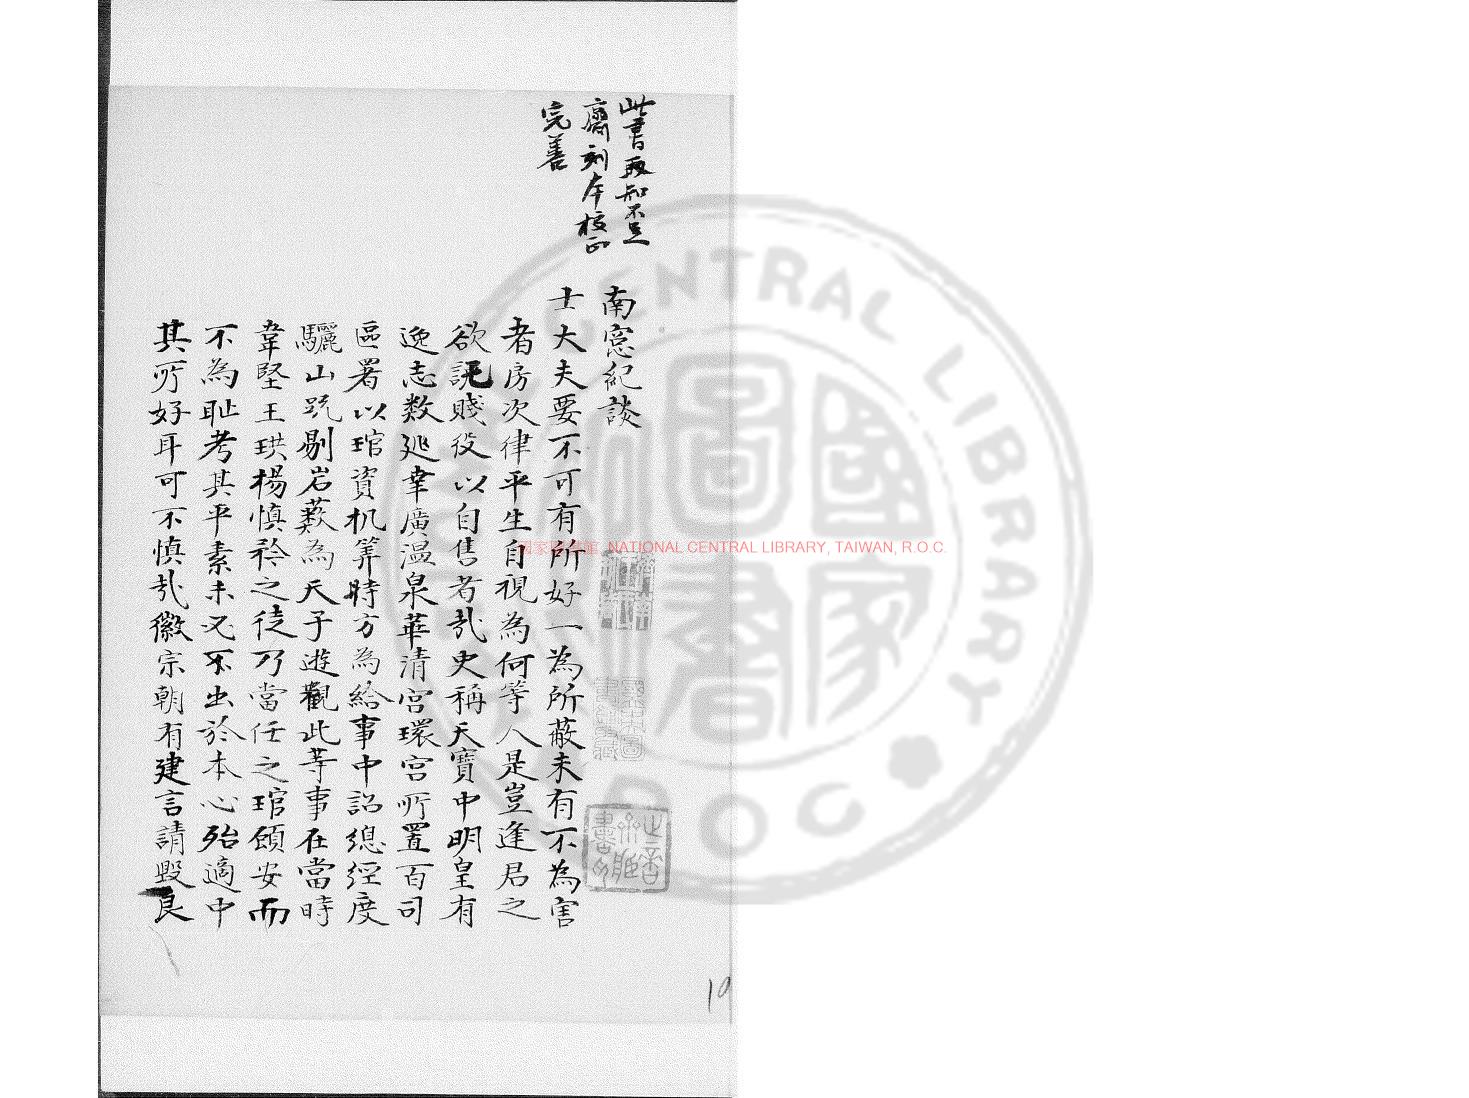 此書取知不足
齋刻本校正
完善
南窓紀談
士大夫要不可有所好一為所蔽未有不為害
者房次律平生自視為何等人是豈逢君之
欲詭賤役以自售者㢤史稱天寶中明皇有
逸志数廵幸廣温泉華清宫環宫所置百司
區署以琯資机筭時方為給事中詔總經度
驪山䟽剔岩薮為天子遊觀此等事在當時
韋堅王珙楊慎矜之徒乃當任之琯顧安而
不為耻考其平素未必不出於本心殆適中
其所好耳可不慎㢤徽宗朝有建言請毀良
國家圖書館, NATIONAL CENTRAL LIBRARY, TAIWAN, R.O.C.
CENTRAL LIBRARY
國家圖書
ROC
19